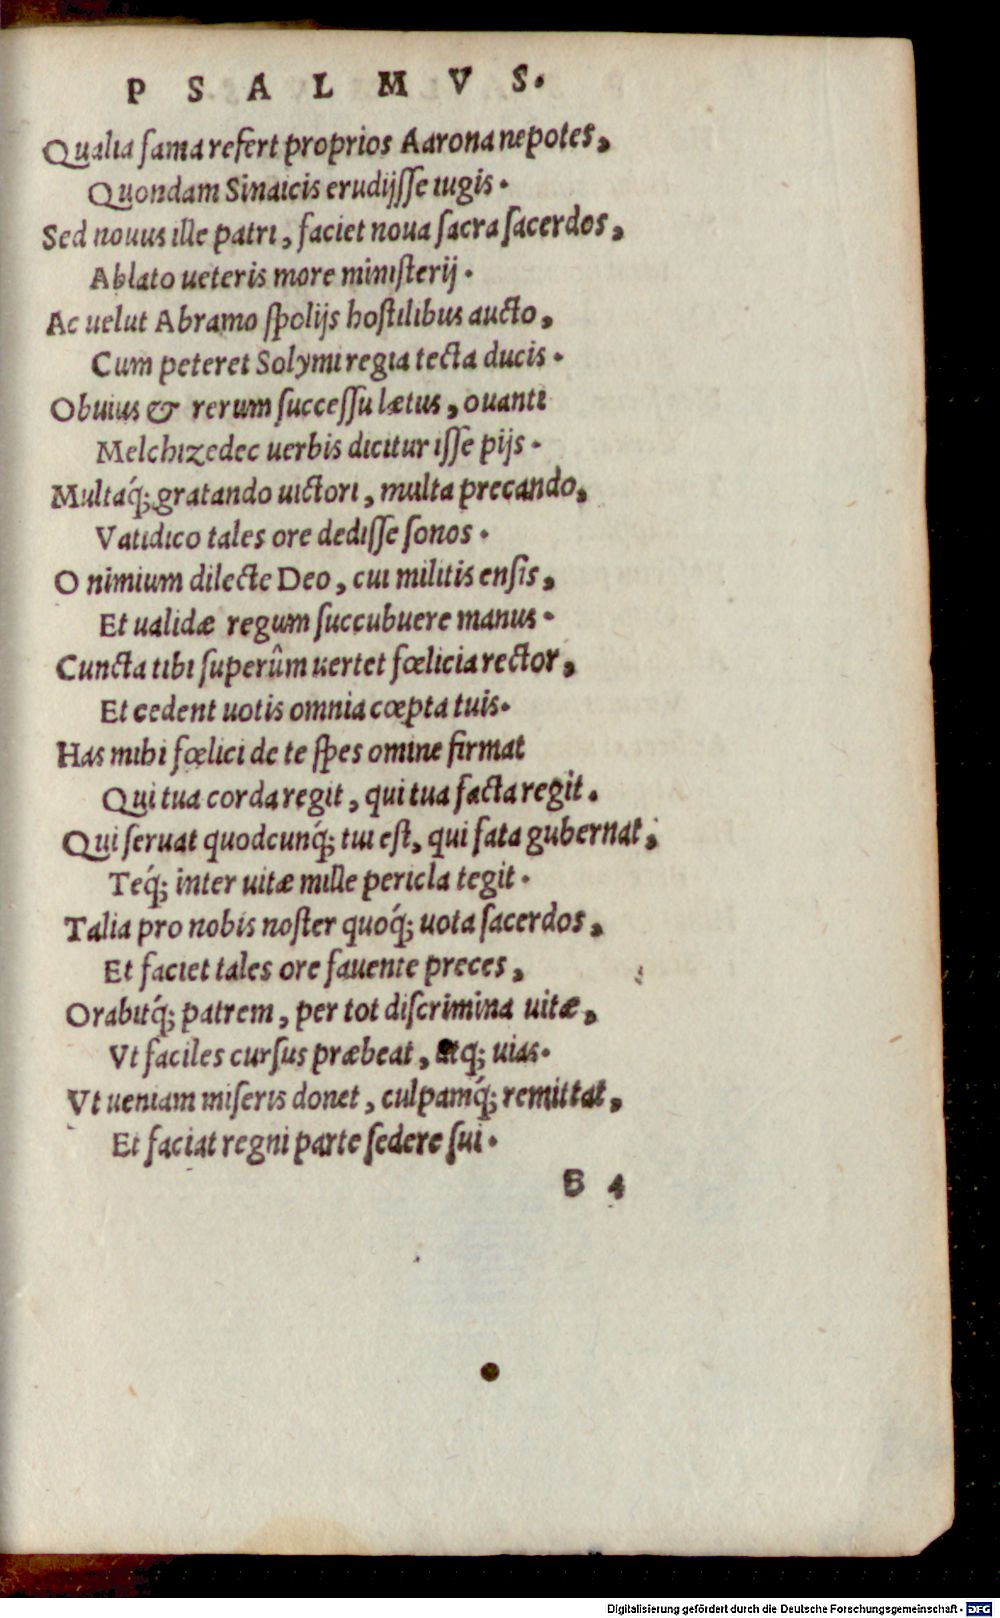 P S A L M V S.
Qualia fama refert proprios Aarona nepotes,
Quondam Sinaicis erudijſſe iugis.
Sed nouus ille patri, faciet noua ſacra ſacerdos,
Ablato ueteris more miniſterij.
Ac uelut Abramo ſpolijs hoſtilibus aucto,
Cum peteret Solymi regia tecta ducis.
Obuius & rerum ſucceſſu lætus, ouanti
Melchizedec uerbis dicitur iſſe pijs.
Multaq́; gratando uictori, multa precando,
Vatidico tales ore dediſſe ſonos.
O nimium dilecte Deo, cui militis enſis,
Et ualidæ regum ſuccubuere manus.
Cuncta tibi ſuperûm uertet fœlicia rector,
Et cedent uotis omnia cœpta tuis.
Has mihi fœlici de te ſpes omine firmat
Qui tua corda regit, qui tua facta regit.
Qui ſeruat quodcunq́; tui eſt, qui fata gubernat,
Teq́; inter uitæ mille pericla tegit.
Talia pro nobis noſter quoq́; uota ſacerdos,
Et faciet tales ore fauente preces,
Orabitq́; patrem, per tot diſcrimina uitæ,
Vt faciles curſus præbeat, atq; uias.
Vt ueniam miſeris donet, culpamq́; remittat,
Et faciat regni parte ſedere ſui.
B 4
Digitalisierung gefördert durch die Deutsche Forschungsgemeinschaft - DFG